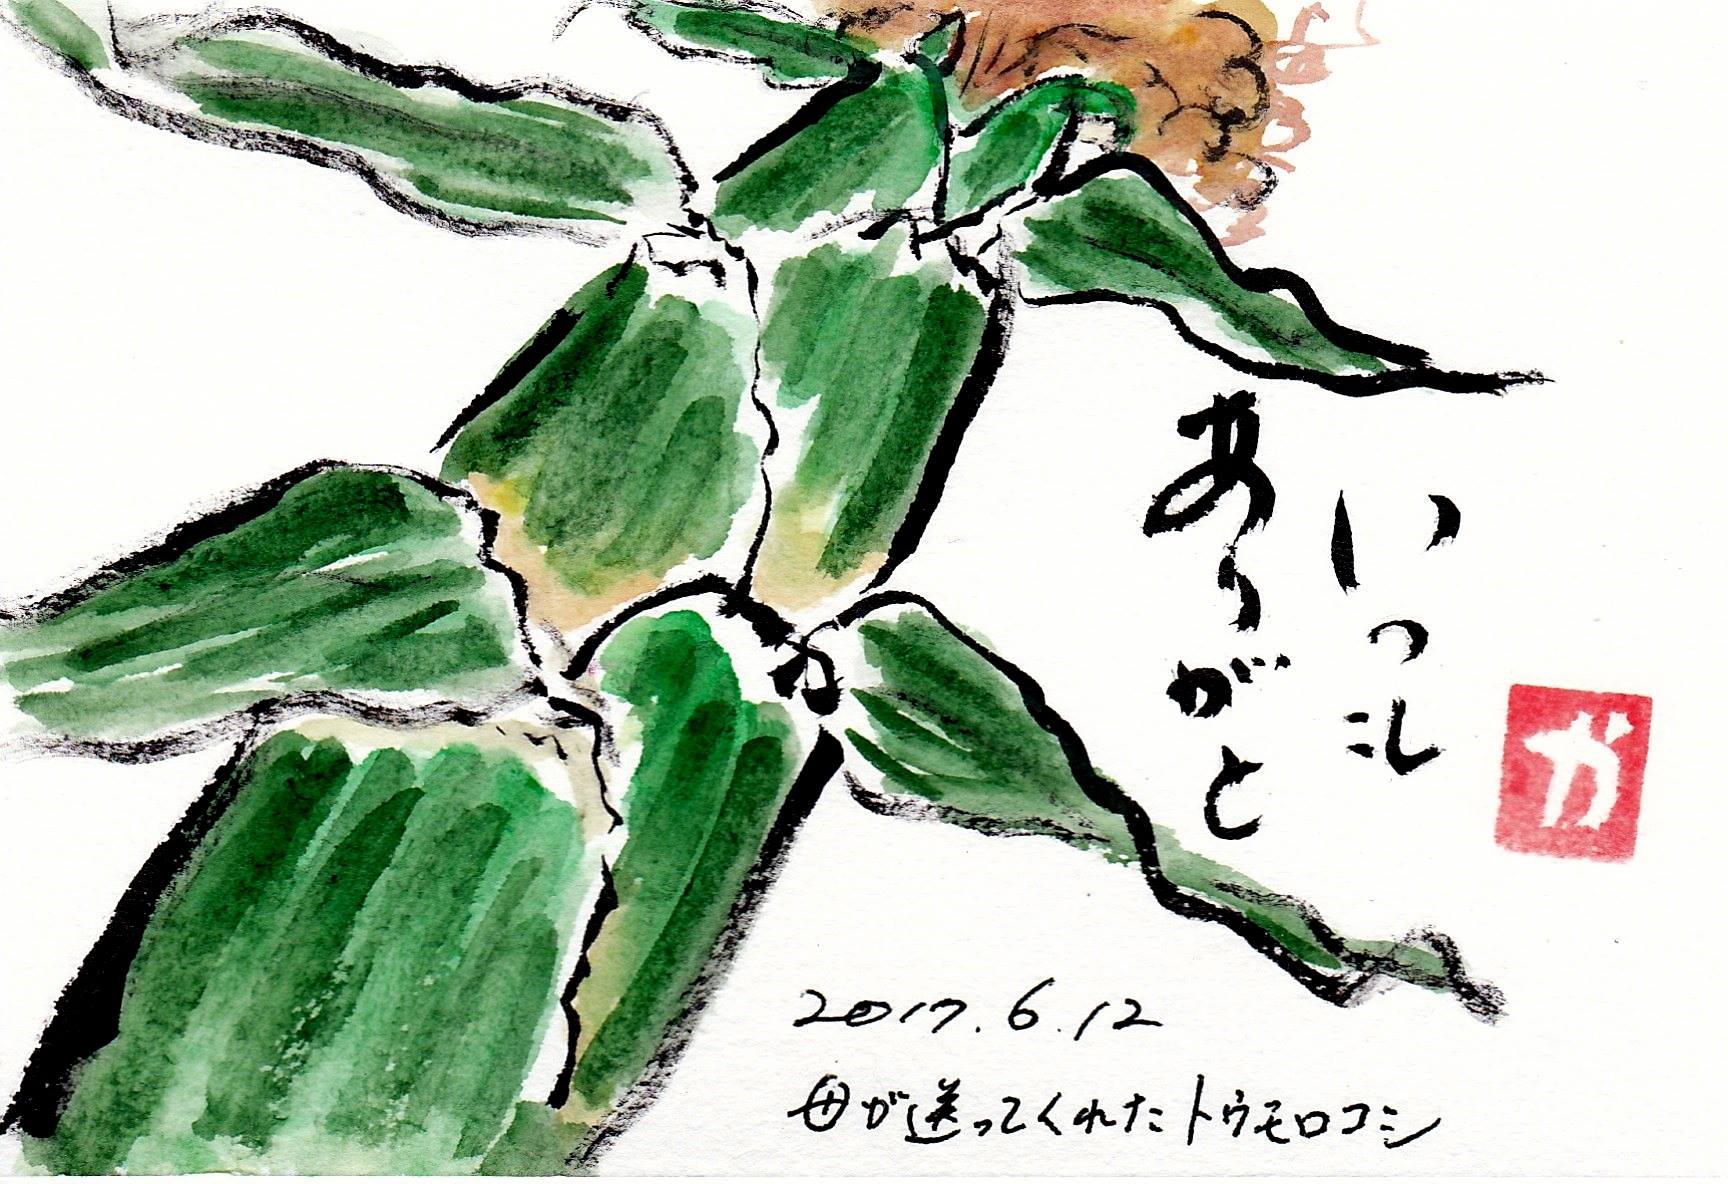 いつも
ありがと
が
2017.6.12
母が送ってくれたトウモロコシ